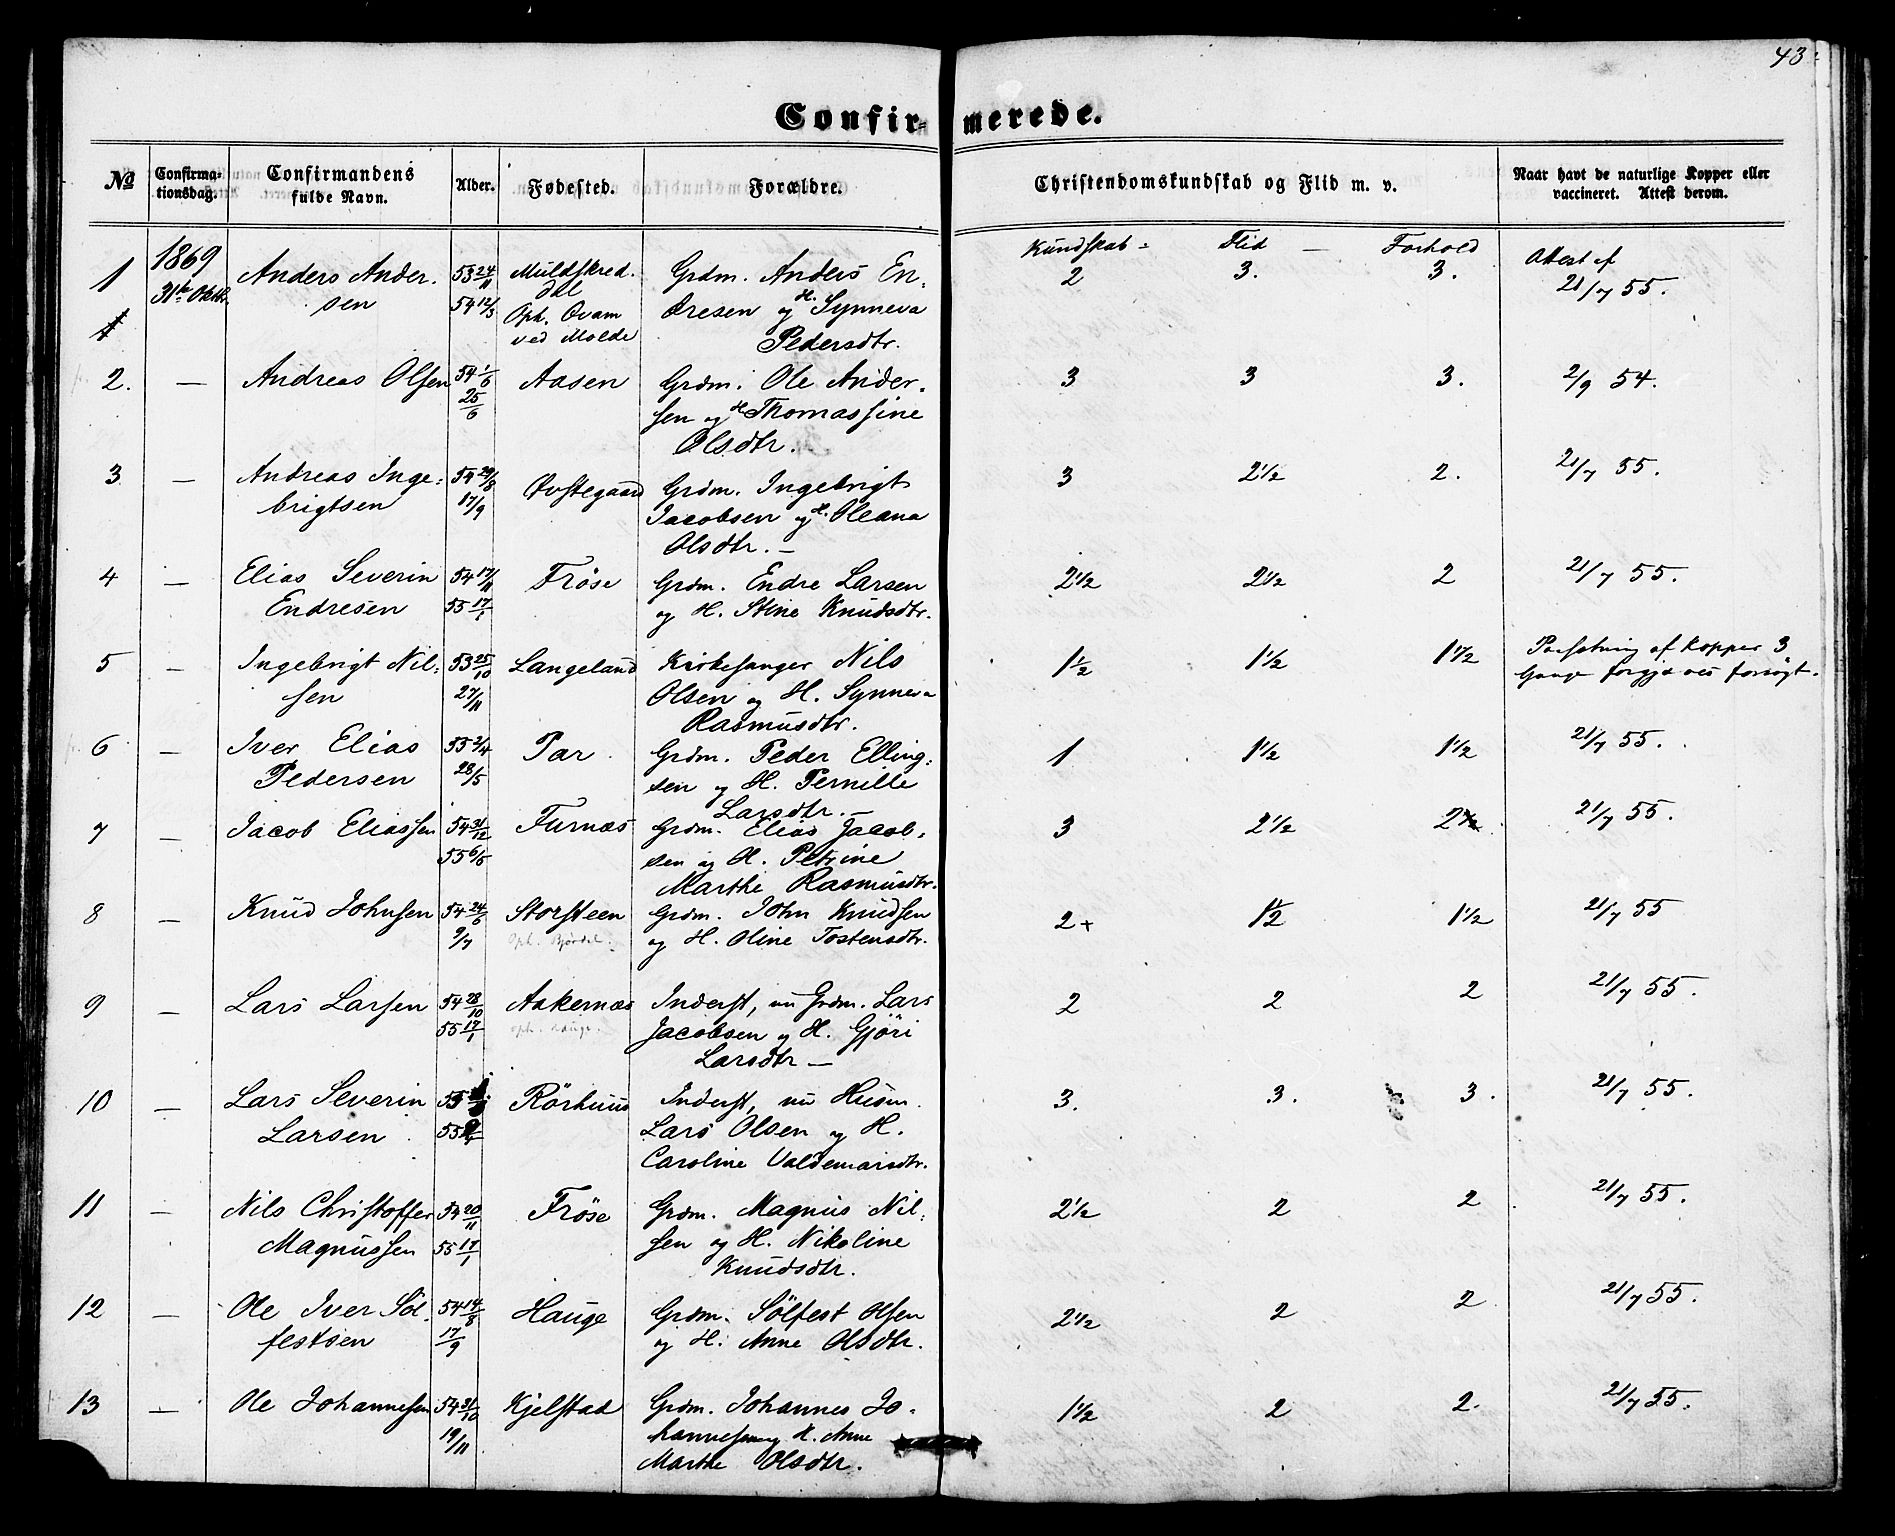 43.
Confirmerede.
No
Confirma-
tionsdag.
Confirmandens
fulde Navn.
Alder.
Fødested.
Forældre.
Christendomskundskab og Flid m. v.
Naar havt de naturlige Kopper eller
vaccineret. Attest derom.
Kundskab - Flid — Forhold
1 1869 Anders Ander- 53 24/11 Muldskred- Grdm. Anders En- 2 3. 3. Attest af
31te Oktbr. sen 54 12/3 dal dresen og H. Synneva 21/7 55.
1 Oph. Qvam Pedersdtr.
ved Molde
2. — Andreas Olsen 54 1/6 Aasen Grdm. Ole Ander- 3 3 3. 2/9 54.
25/6 sen og H. Thomassine
Olsdtr.
3 — Andreas Inge- 54 29/8 Øvstegaard Grdm. Ingebrigt 3 2 1/2 2. 21/7 55.
brigtsen 17/9 Jacobsen og H. Oleana
Olsdtr. —
4 — Elias Severin 54 17/11 Fröse Grdm. Endre Larsen 2 1/2 2 1/2 2 21/7 55.
Endresen 55 17/1 og H. Stine Knudsdtr.
5 — Ingebrigt Nil- 53 25/10 Langeland Kirkesanger Nils 1 1/2 1 1/2 1 1/2 Paasætning af Kopper 3
sen 27/11 Olsen og H. Synneva Gange forgjæves forsögt.
Rasmusdtr.
6 — Iver Elias 55 2/4 Par Grdm. Peder Elling- 1 1 1/2 1 1/2 21/7 55.
Pedersen 28/5 sen og H. Pernille
Larsdtr. —
7 — Jacob Eliassen 54 31/12 Furnæs Grdm. Elias Jacob- 3 2 1/2 2 21/7 55.
55 6/5 sen og H. Petrine
Marthe Rasmusdtr.
8 — Knud Johnsen 54 24/6 Storsteen Grdm. John Knudsen 2+ 1 1/2 1 1/2 21/7 55
9/7 Oph. og H. Oline Tostensdtr.
9 — Lars Larsen 54 28/10 Aakernæs Inderst, nu Grdm. Lars 2 2 2 21/7 55.
55 17/1 oph. Hauge. Jacobsen og H. Gjöri
Larsdtr —
10 — Lars Severin 55 Rörhuus Inderst, nu Husm. 3. 3. 3. 21/7 55.
Larsen 55 Lars Olsen og H.
Caroline Valdemarsdtr.
11 — Nils Christoffer 54 20/11 Fröse Grdm. Magnus Nil- 2 1/2 2 2 21/7 55.
Magnussen 55 17/1 sen og H. Nikoline
Knudsdtr.
12 — Ole Iver Söl- 54 14/8 Hauge Grdm. Sölfest Olsen 2 1/2 2 2 21/7 55.
festsen 17/9 og H. Anne Olsdtr.
13 — Ole Johannesen 54 31/10 Kjelstad Grdm. Johannes Jo- 1 1/2 2 2. 21/7 55.
19/11 hannesen og H. Anne
Marthe Olsdtr.